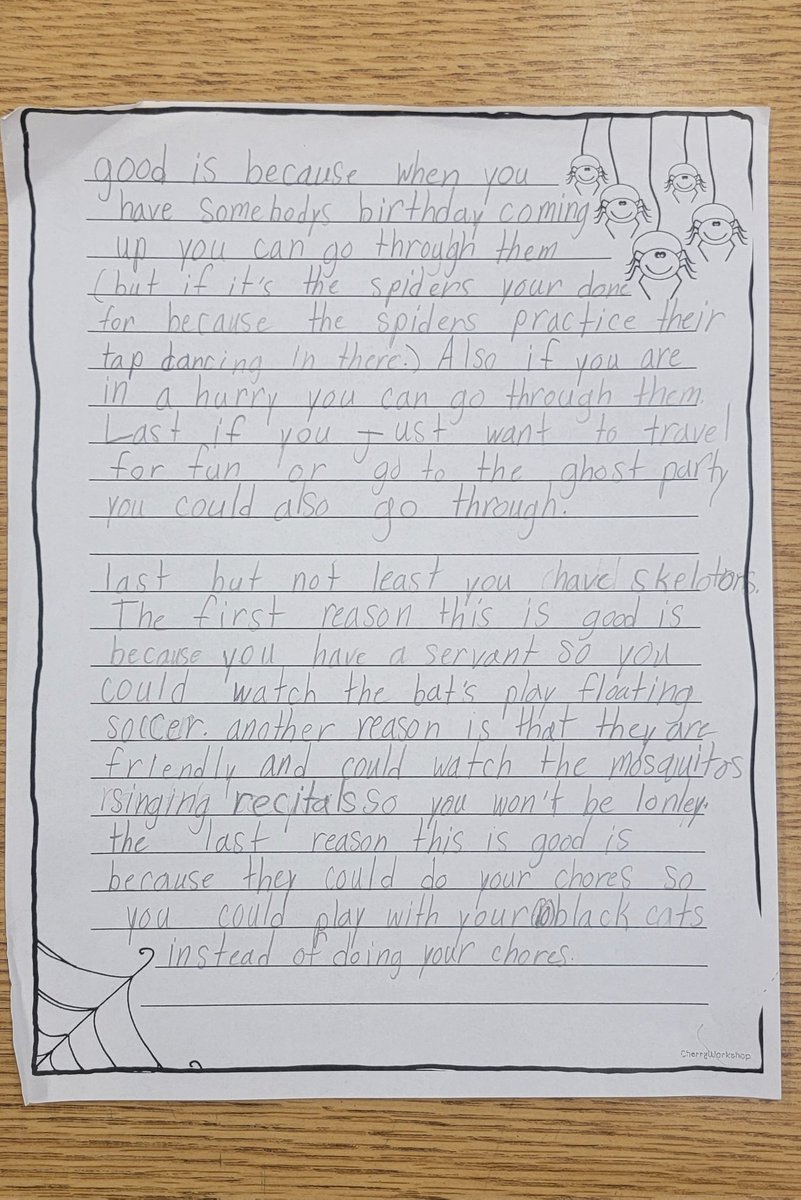 good is because when you
have somebodys birthday coming
up you can go through them
(but if it's the spiders your done
for because the spiders practice their
tap dancing in there.) Also if you are
in a hurry you can go through them.
Last if you just want to travel
for fun or go to the ghost party
you could also go through.
last but not least you have skelotons.
The first reason this is good is
because you have a servant so you
could watch the bat's play floating
soccer. another reason is that they are
friendly and could watch the mosquitos
singing recitals so you won't be lonley.
the last reason this is good is
because they could do your chores so
you could play with your black cats
instead of doing your chores.
CherryWorkshop